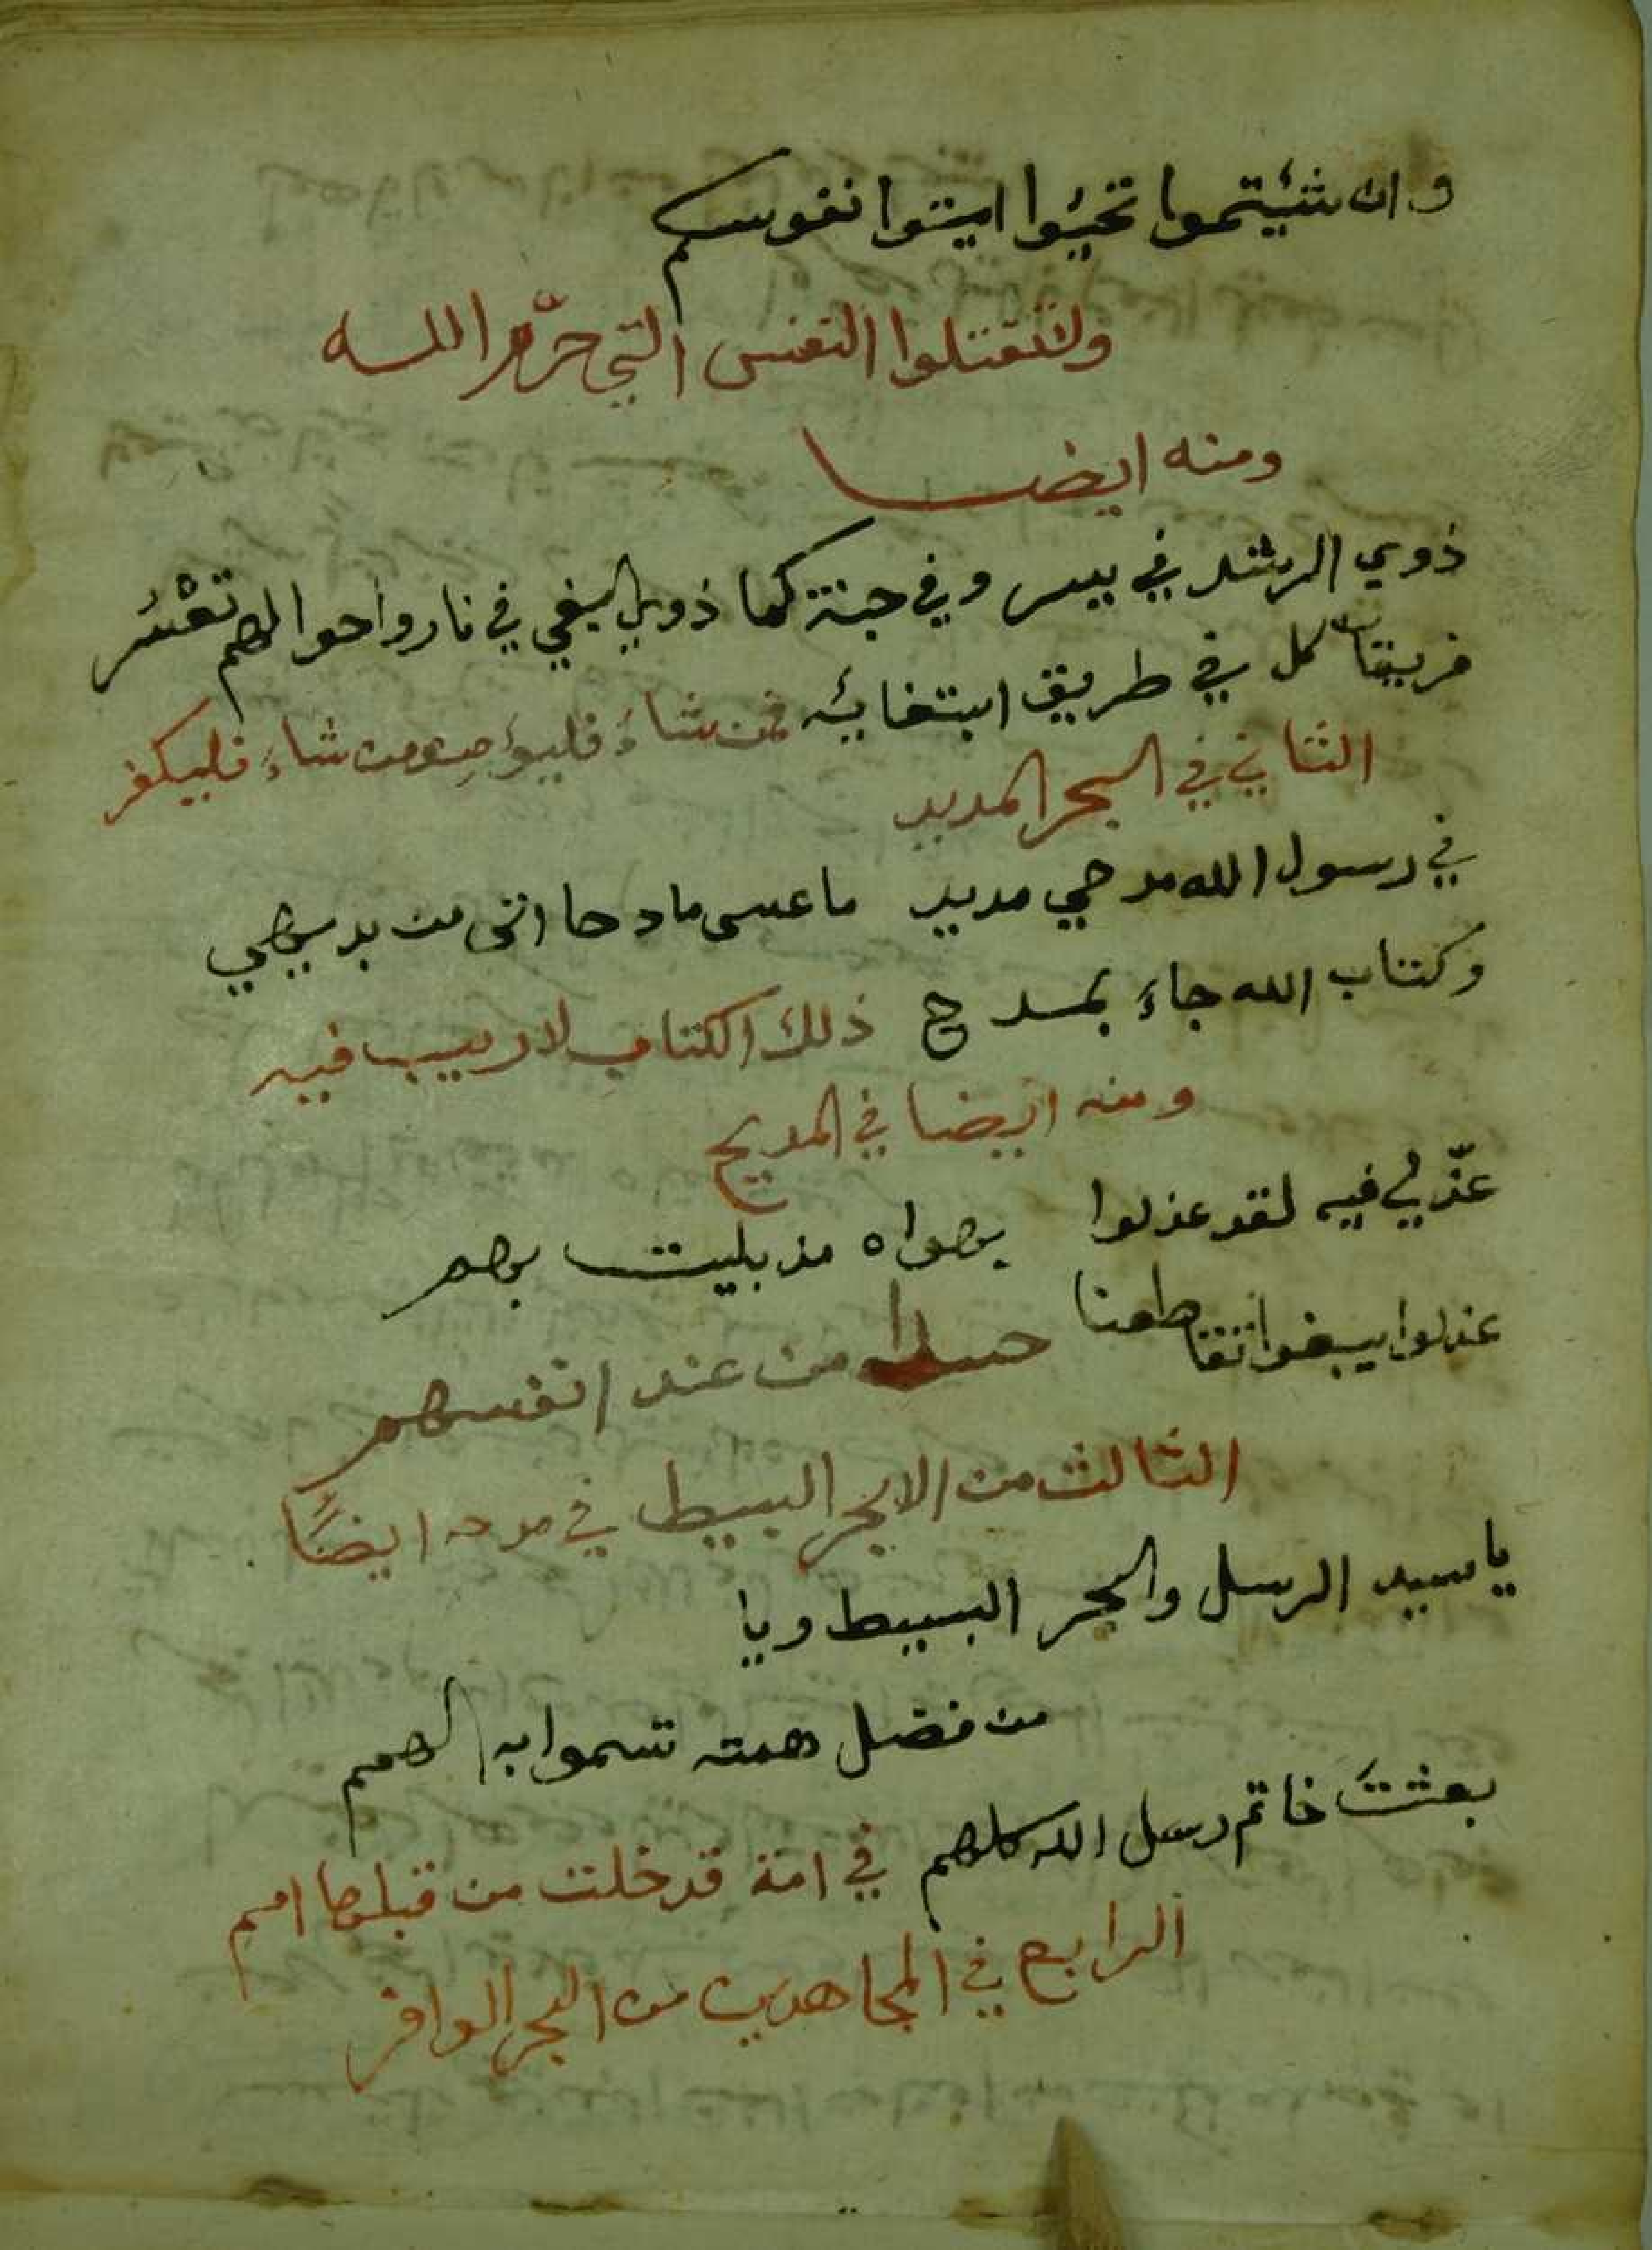 وان شئيتموا تحيئوا اميتوا نفوسكم
ولا تقتلوا النفس التي حرّم الله
ومنه ايضا
ذوي الرشد في يسر وفي جنة كما ذوي البغي في نار واحوالهم تعْسُر
فريقان كل في طريق ابتغائه فمن شاءَ فليؤمن ومن شاءَ فليكفر
الثاني في البحر المديد
في رسول الله مدحي مديد ما عسى مادحا اتى من بديهي
وكتاب الله جاءَ بمدح ذلك الكتاب لا ريب فيه
ومنه ايضا في المديح
عذّلي فيه لقد عذلوا بهواه مذ بليت بهم
عذلوا يبغوا تقاطعنا حسدا من عند انفسهم
الثالث من الابحر البسيط في مدحه ايضًا
يا سيد الرسل والبحر البسيط ويا
من فضل همته تسموا به الهمم
بعثتَ خاتم رسل الله كلهم في امة قد خلت من قبلها امم
الرابع في المجاهدين من البحر الوافر